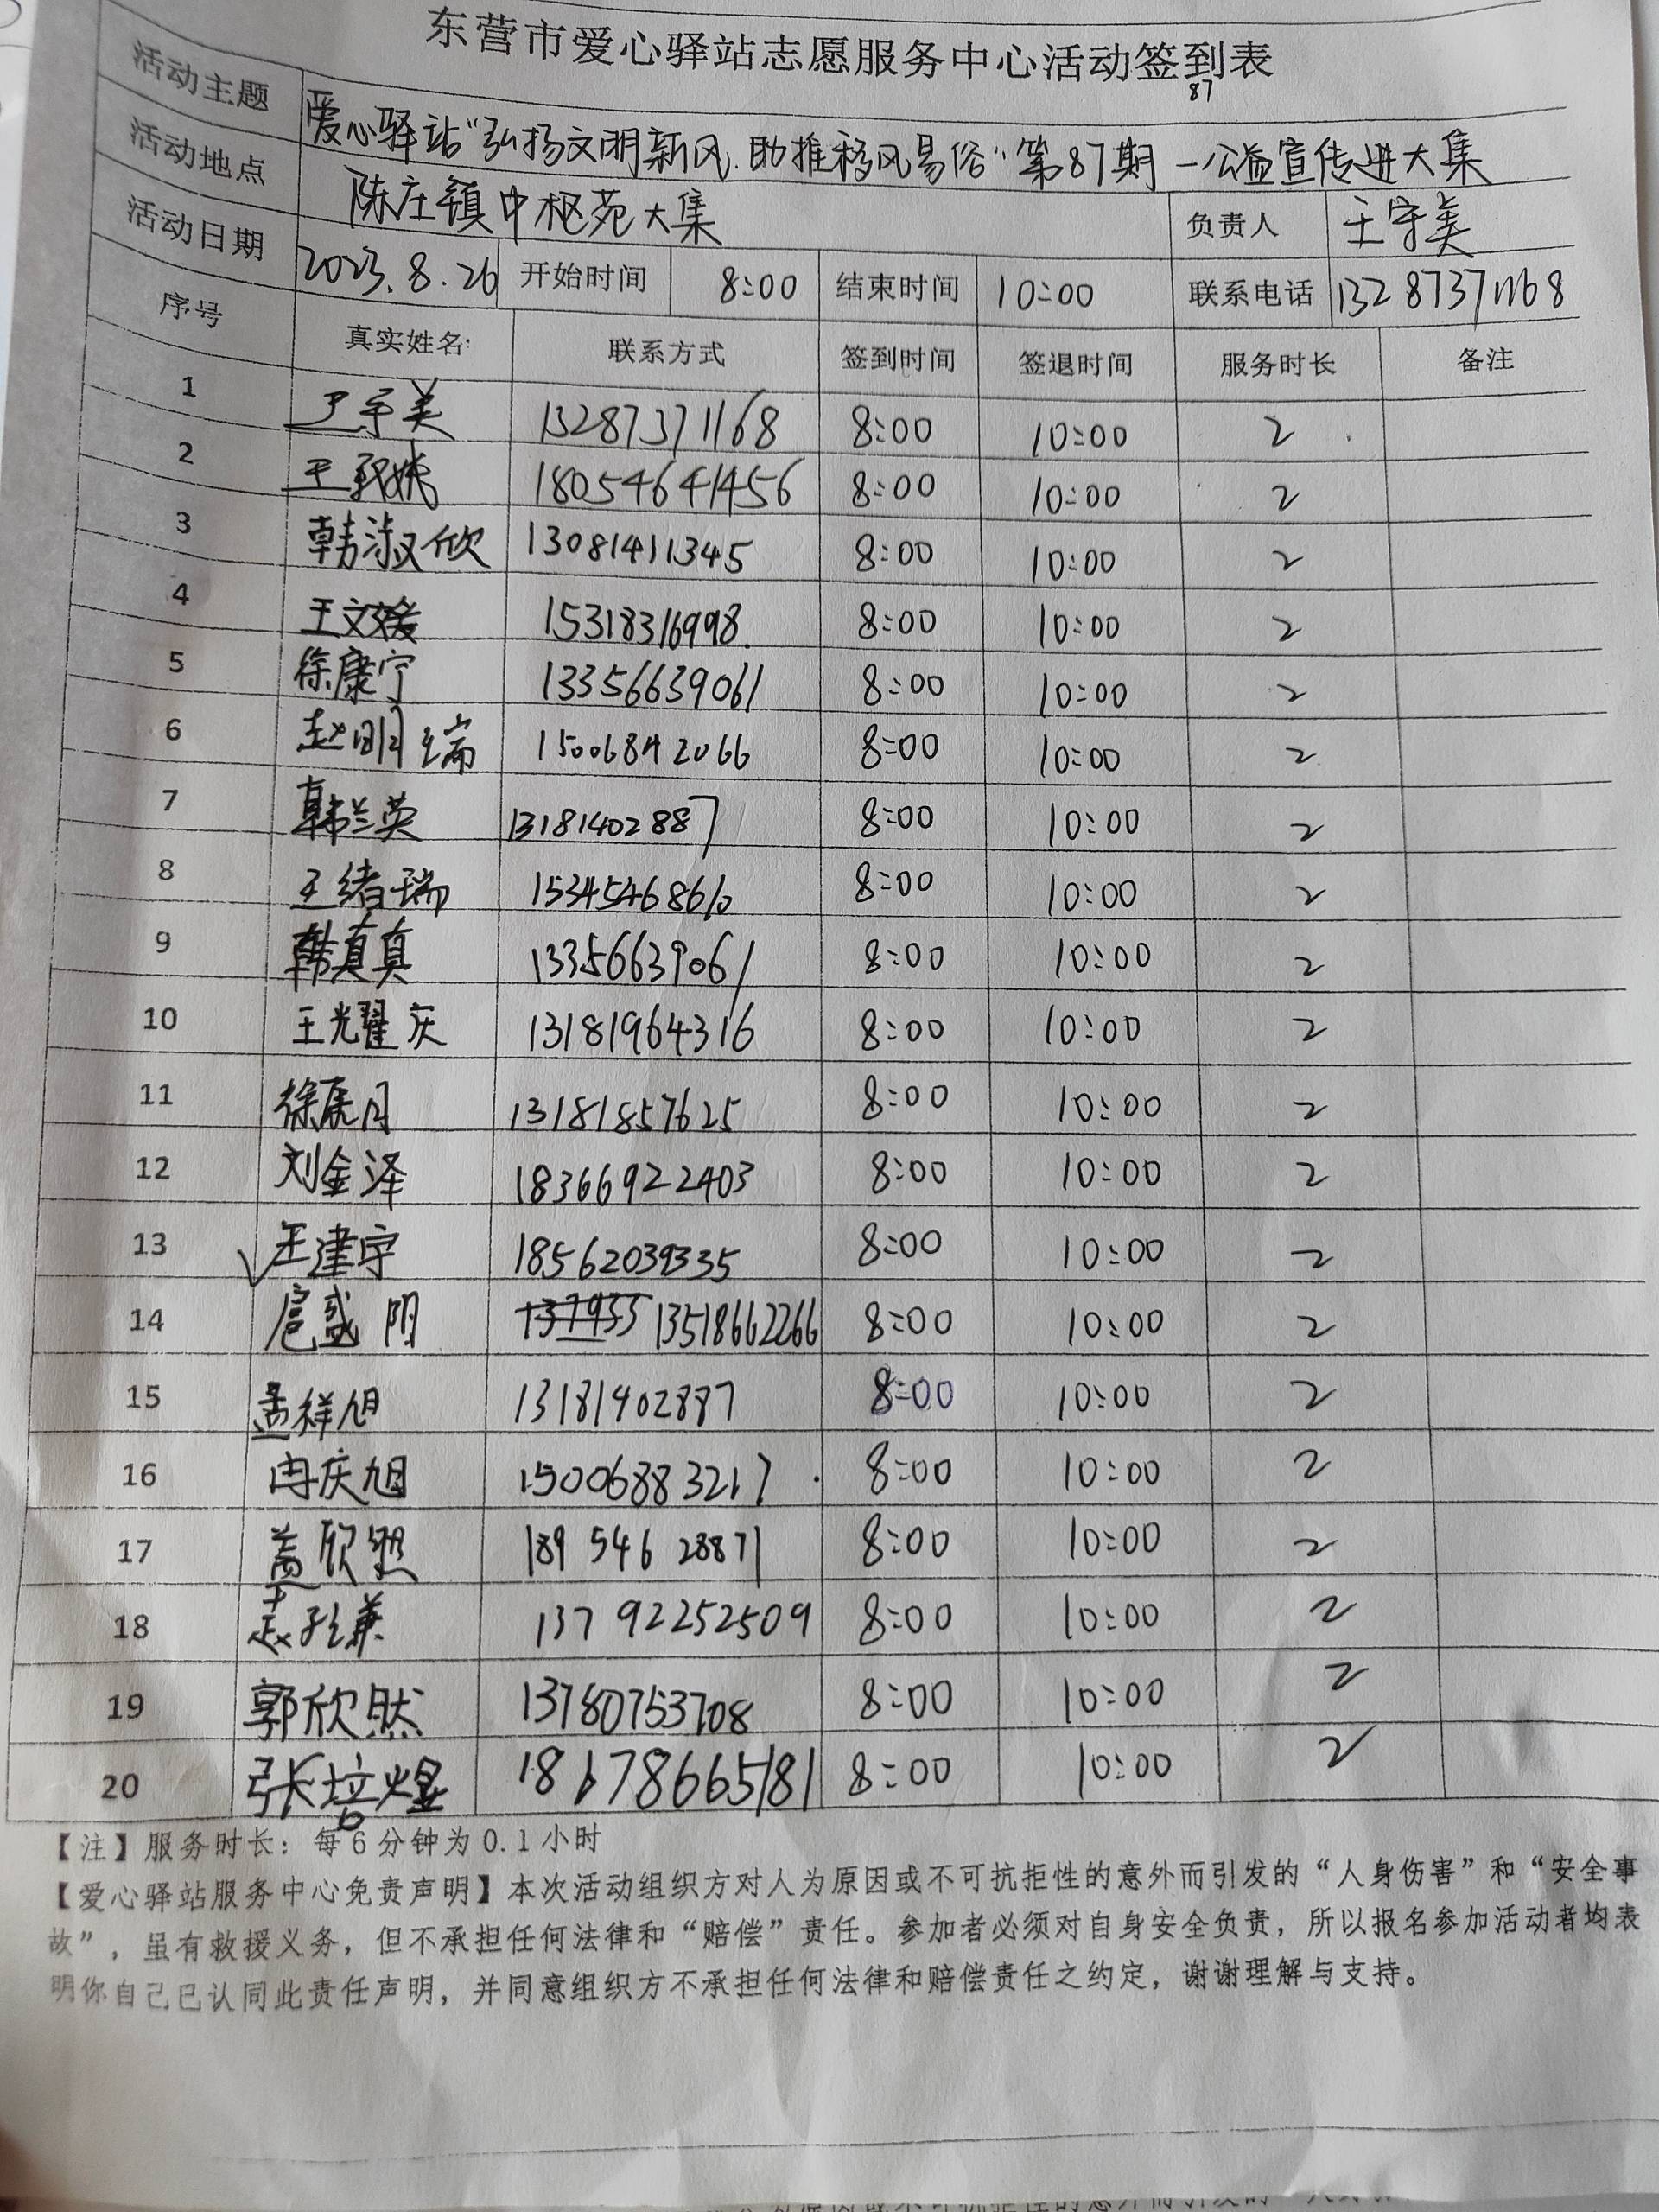 东营市爱心驿站志愿服务中心活动签到表
87
活动主题 爱心驿站“弘扬文明新风.助推移风易俗”第87期—公益宣传进大集
活动地点 陈庄镇中枢苑大集 负责人 王守美
活动日期 2023.8.26 开始时间 8:00 结束时间 10:00 联系电话 13287371168
序号 真实姓名 联系方式 签到时间 签退时间 服务时长 备注
1 王守美 13287371168 8:00 10:00 2
2 18054641456 8:00 10:00 2
3 韩淑欣 13081411345 8:00 10:00 2
4 王文媛 15318316998 8:00 10:00 2
5 徐康宁 13356639061 8:00 10:00 2
6 赵明瑞 15006842066 8:00 10:00 2
7 韩兰英 13181402887 8:00 10:00 2
8 王绪瑞 15345468610 8:00 10:00 2
9 韩真真 13356639061 8:00 10:00 2
10 王光耀庆 13181964316 8:00 10:00 2
11 徐康月 13181857625 8:00 10:00 2
12 刘金泽 18366922403 8:00 10:00 2
13 王建宇 18562039335 8:00 10:00 2
14 扈盛阳 13518662266 8:00 10:00 2
15 孟祥旭 13181402887 8:00 10:00 2
16 冉庆旭 15006883217 8:00 10:00 2
17 盖欣熙 189 546 28871 8:00 10:00 2
18 137 92252509 8:00 10:00 2
19 郭欣然 13780753708 8:00 10:00 2
20 张培煜 18678665181 8:00 10:00 2
【注】服务时长：每6分钟为0.1小时
【爱心驿站服务中心免责声明】本次活动组织方对人为原因或不可抗拒性的意外而引发的“人身伤害”和“安全事
故”，虽有救援义务，但不承担任何法律和“赔偿”责任。参加者必须对自身安全负责，所以报名参加活动者均表
明你自己已认同此责任声明，并同意组织方不承担任何法律和赔偿责任之约定，谢谢理解与支持。